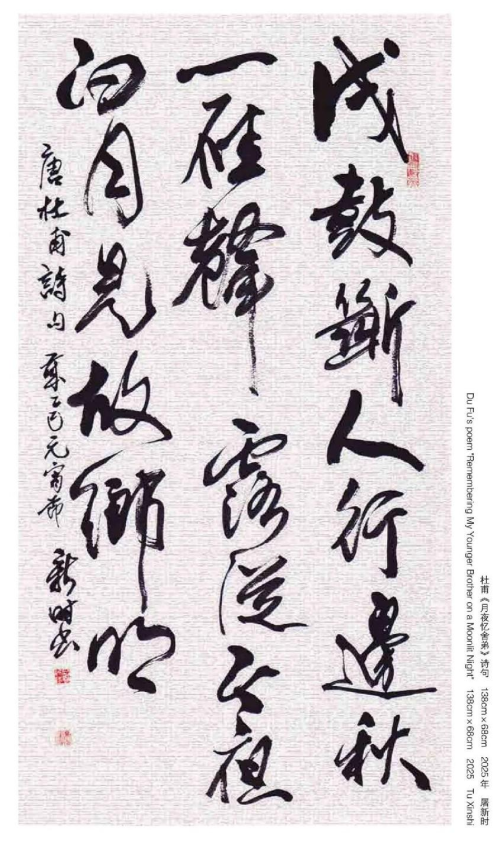 戍鼓斷人行邊秋
一雁聲露從今夜
白月是故鄉明
唐杜甫詩句 歲乙巳元宵節 新時書
杜甫《月夜忆舍弟》诗句 138cm×68cm 2025年 屠新时
Du Fu's poem "Remembering My Younger Brother on a Moonlit Night" 138cm×68cm 2025 Tu Xinshi